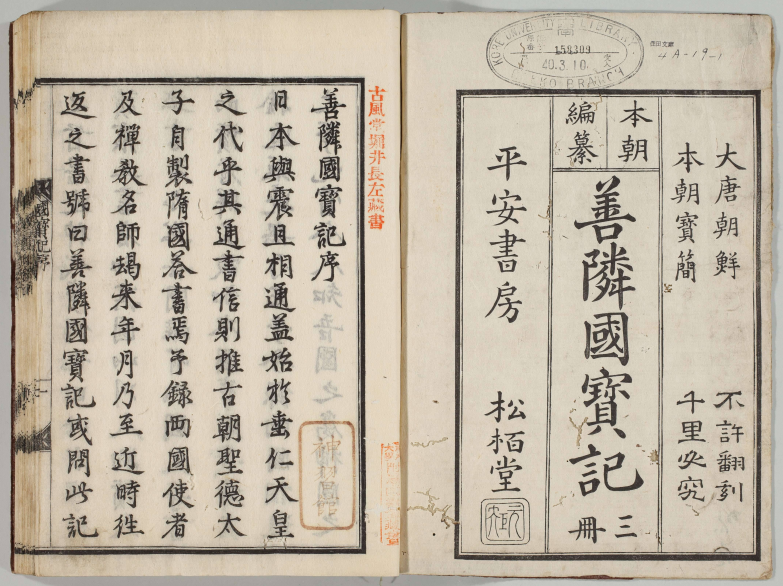 KOBE UNIVERSITY LIBRARY
158309
40.3.10.
BRANCH
住田文庫
4A-19-1
大唐朝鮮 不許翻刻
本朝寶簡 千里必究
本朝
編纂
善隣國寶記 三冊
平安書房 松栢堂
古風堂堀井長左藏書
善隣國寶記序
日本與震旦相通盖始於垂仁天皇
之代乎其通書信則推古朝聖德太
子自製隋國荅書焉予録両國使者
及禪教名師朅来年月乃至近時徃
返之書號曰善隣國寶記或問此記
國寶記序